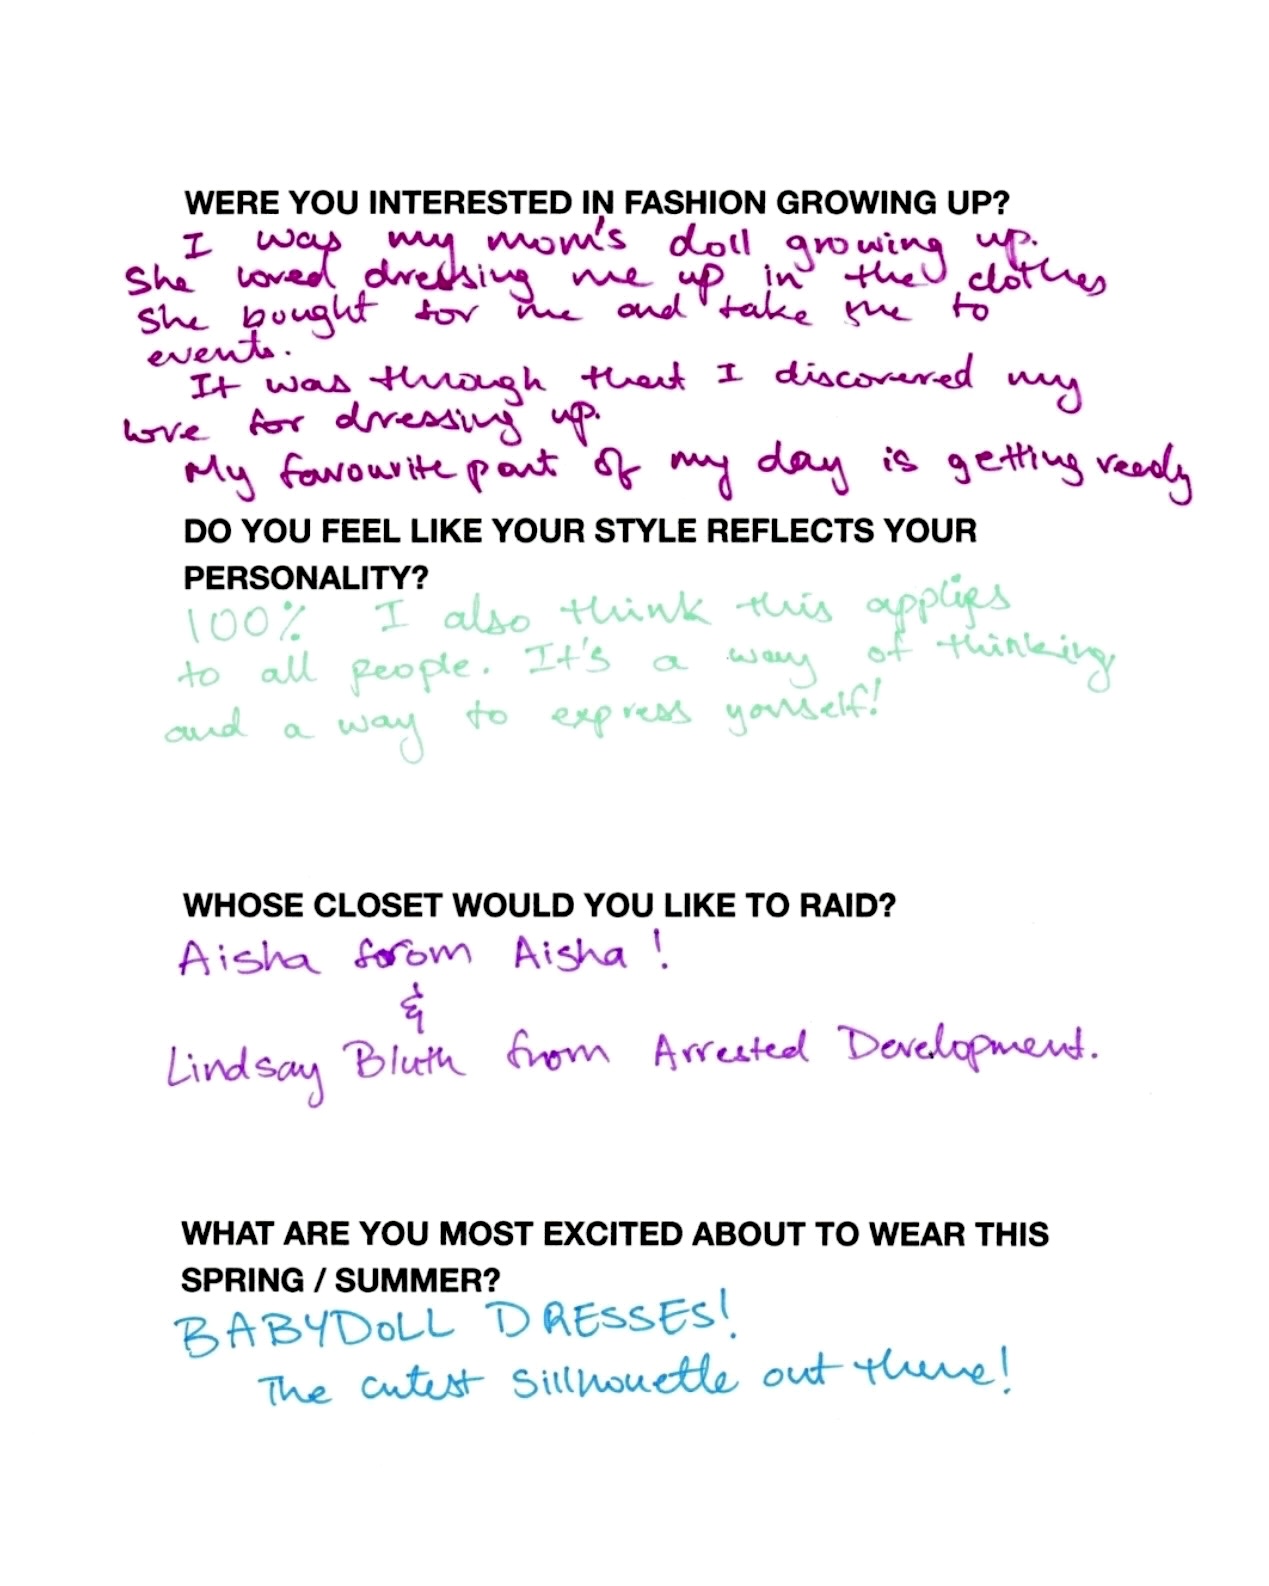 WERE YOU INTERESTED IN FASHION GROWING UP?
I was my mom's doll growing up.
She loved dressing me up in the clothes
She bought for me and take me to
events.
It was through that I discovered my
love for dressing up.
My favourite part of my day is getting ready
DO YOU FEEL LIKE YOUR STYLE REFLECTS YOUR
PERSONALITY?
100% I also think this applies
to all people. It's a way of thinking
and a way to express yourself!
WHOSE CLOSET WOULD YOU LIKE TO RAID?
Aisha from Aisha!
&
Lindsay Bluth from Arrested Development.
WHAT ARE YOU MOST EXCITED ABOUT TO WEAR THIS
SPRING / SUMMER?
BABYDOLL DRESSES!
The cutest Sillhouette out there!